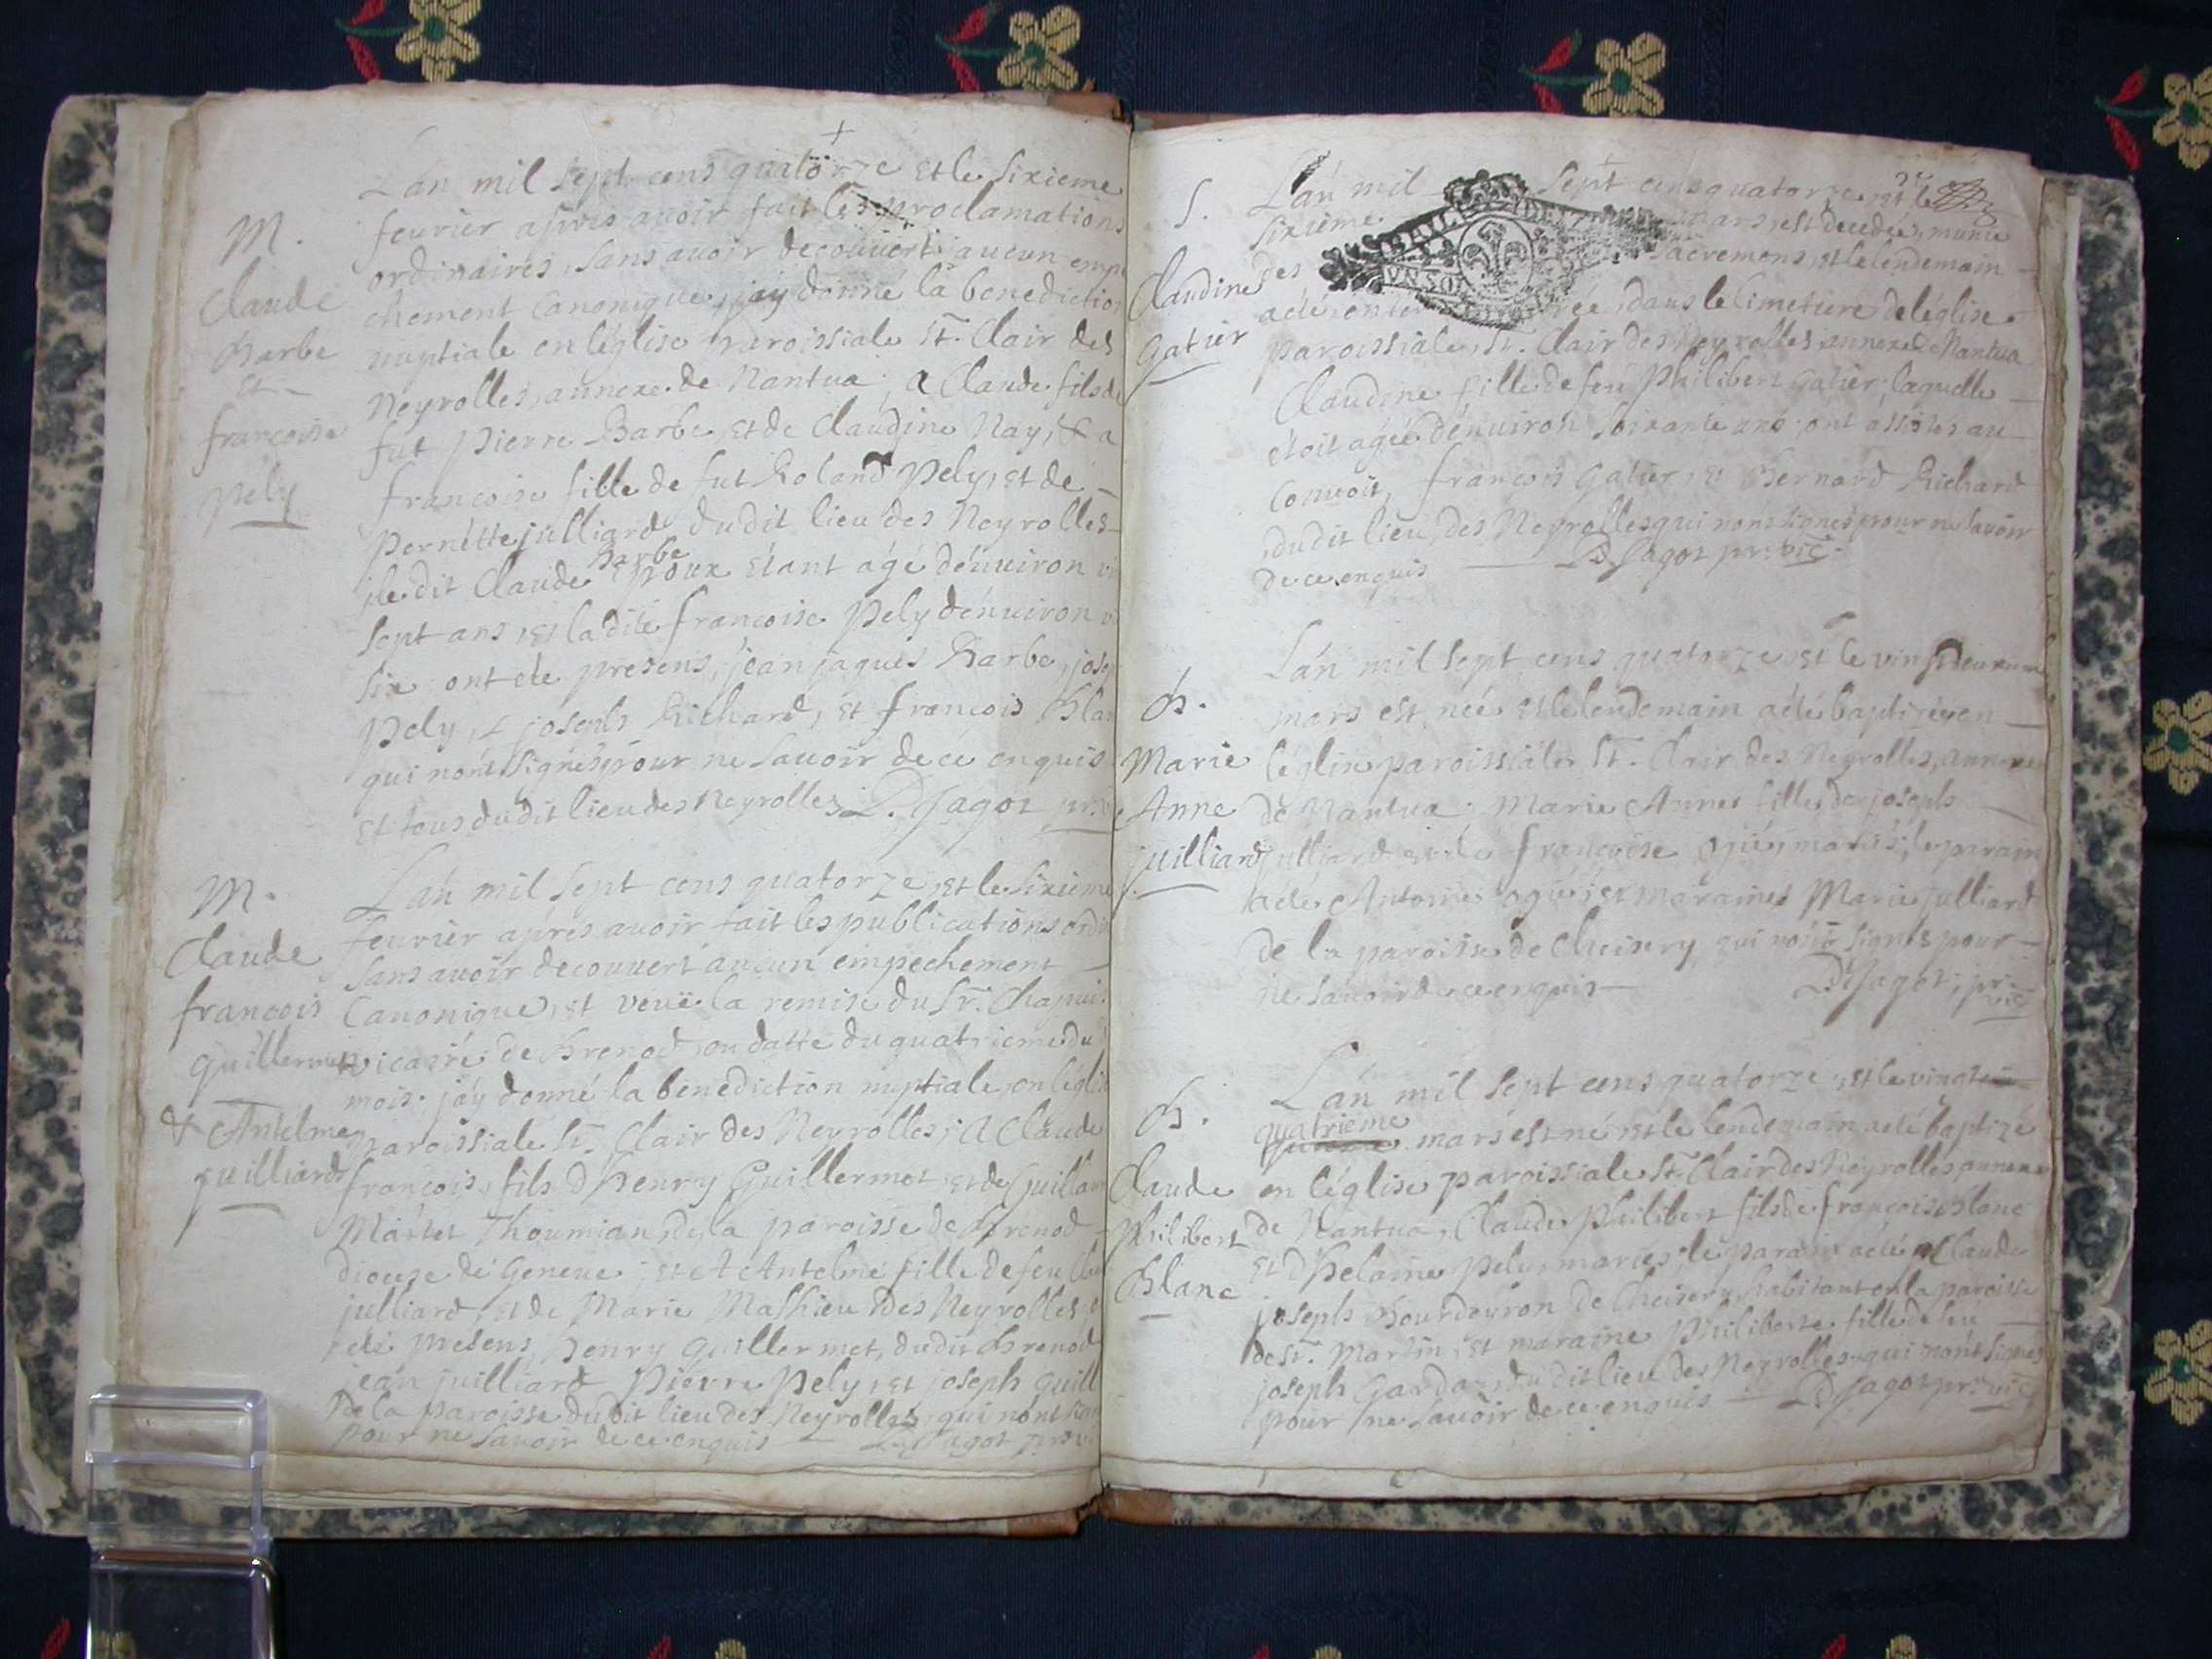 +
L'an mil sept cens quatorze et le sixieme
M.
feurier apres auoir fait les proclamations
ordinaires, sans auoir decouvert aucun empe
Claude
chement canonique, j'ay donné la benedictio
Barbe
nuptiale en l'église paroissiale St. Clair des
et
Neyrolles, annexe de Nantua, a Claude fils de
francoise
fut Pierre Barbe, et de Claudine Nay, & a
pely
francoise fille de fut Roland Pely, et de
pernétte julliard dudit lieu des Neyrolles
Barbe
le dit Claude époux étant agé d'énuiron
sept ans, et la dite francoise Pely d'énuiron
six, ont été presens, jean jaques Barbe, jose
pely, & joseph Richard, et francois Blan
qui n'ont signés pour ne sauoir de ce enquis
et tous dudit lieu des Neyrolles D. Jagot pr.
L'an mil sept cens quatorze, et le sixieme
M.
feurier aprés auoir fait les publications ordi
Claude
sans auoir decouuert aucun empechement
francois
canonique, et veuë la remise du Sr. Chapui
guillermet
vicaire de Brenod, en datte du quatrieme du
mois, j'ay donné la benediction nuptiale en l'églis
& Antelme
paroissiale St. Clair des Neyrolles, a Claude
juilliard
francois, fils d'henry Guillermet, et de
Thoumian, de la paroisse de Brenod
diocese de Geneue, et a Antelme fille de feu
julliard, et de Marie Mathieu des Neyrolles
été presens, henry Guillermet, dudit Brenod
jean juilliard Pierre Pely, et joseph Guill
de la paroisse dudit lieu des Neyrolles, qui n'ont sign
pour ne sauoir de ce enquis D. Jagot pr. v
+
S.
L'an mil sept cens quatorze et le
sixieme mars, est decedée, munie
Claudine
des sacremens, et le lendemain
a été enterrée, dans le cimetiere de l'église
Gatier
paroissiale, St. Clair des Neyrolles annexe de Nantua
Claudine fille de feu Philibert Gatier, laquelle
étoit agée d'énuiron soixante ans, ont assistés au
conuoit, francois Gatier, et Bernard Richard
dudit lieu des Neyrolles qui n'ont signés pour ne sauoir
de ce enquis D. Jagot pr. vic.
L'an mil sept cens quatorze et le vingt deuxieme
B.
mars est née et le lendemain a été baptizée en
Marie
l'église paroissiale St. Clair des Neyrolles, annexe
Anne
de Nantua, Marie Anne fille de joseph
juilliard
julliard et de francoise mariés, le parain
a été Antoine et maraine Marie julliard
de la paroisse de Cheisery qui n'ont signés pour
ne sauoir de ce enquis D. Jagot, pr. vic.
L'an mil sept cens quatorze, et le vingt
B.
quatrieme
mars est né et le lendemain a été baptizé
Claude
en l'église paroissiale St. Clair des Neyrolles, annexe
Philibert
de Nantua, Claude Philibert fils de francois Blanc
Blanc
et d'helaine Pely, mariés, le parain a été Claude
joseph Bourdeyron de Cheisery habitant en la paroisse
de St. Martin, et maraine Philiberte fille de feu
joseph Gardaz, dudit lieu des Neyrolles qui n'ont signés
pour ne sauoir de ce enquis D Jagot pr. vic.